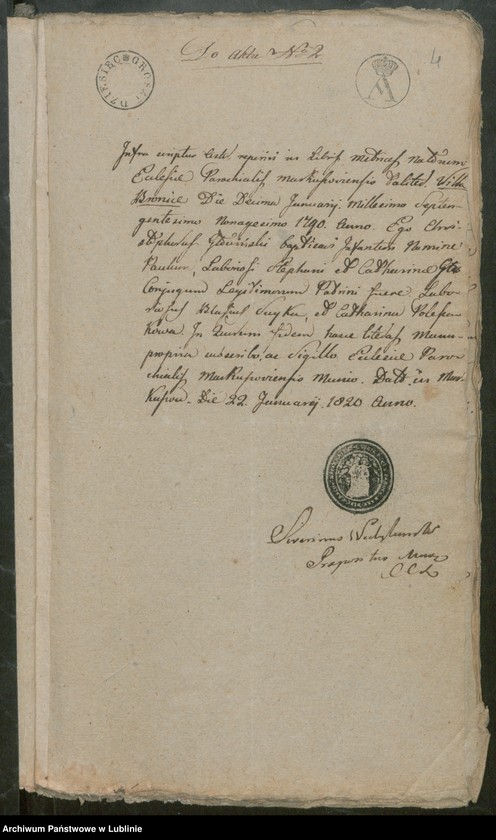 DZIESIĘĆ GROSZY
Do Aktu No 2
4
Infra scriptus testor reperiri in Libris Metrices Natorum
Ecclesiæ Parochialis Markuszoviensis Taliter Villa
Bronice Die Decima Januarij Millesimo Septin-
gentesimo Nonagesimo 1790. Anno. Ego Chri-
stophorus baptisavi Infantem Nomine
Paulum, Laboriosi Stephani et Catharinæ
Conjugum Legitimorum Patrini fuere Labo-
riosus Blasius et Catharina
In Quorum fidem hasce literas Manu
propria subscribo, ac Sigillo Ecclesiæ Paro-
chialis Markuszoviensis Munio. Datt in Mar-
kuszow. Die 22. Januarij 1820 Anno.
Severinus
Præpositus
Archiwum Państwowe w Lublinie